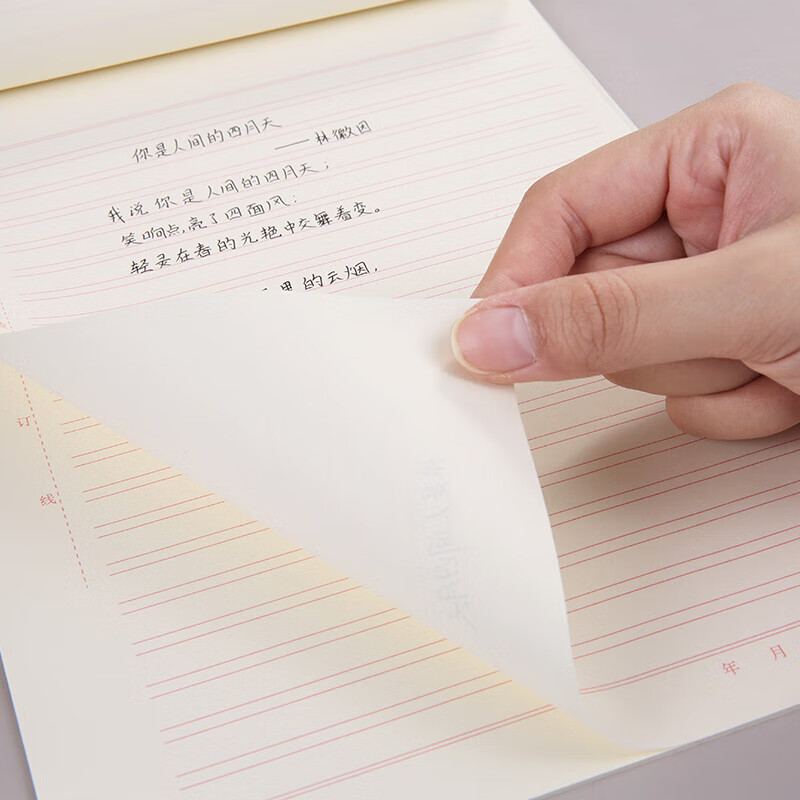 你是人间的四月天
——林徽因
我说你是人间的四月天;
笑响点亮了四面风;
轻灵在春的光艳中交舞着变。
里的云烟,
订
线
年 月